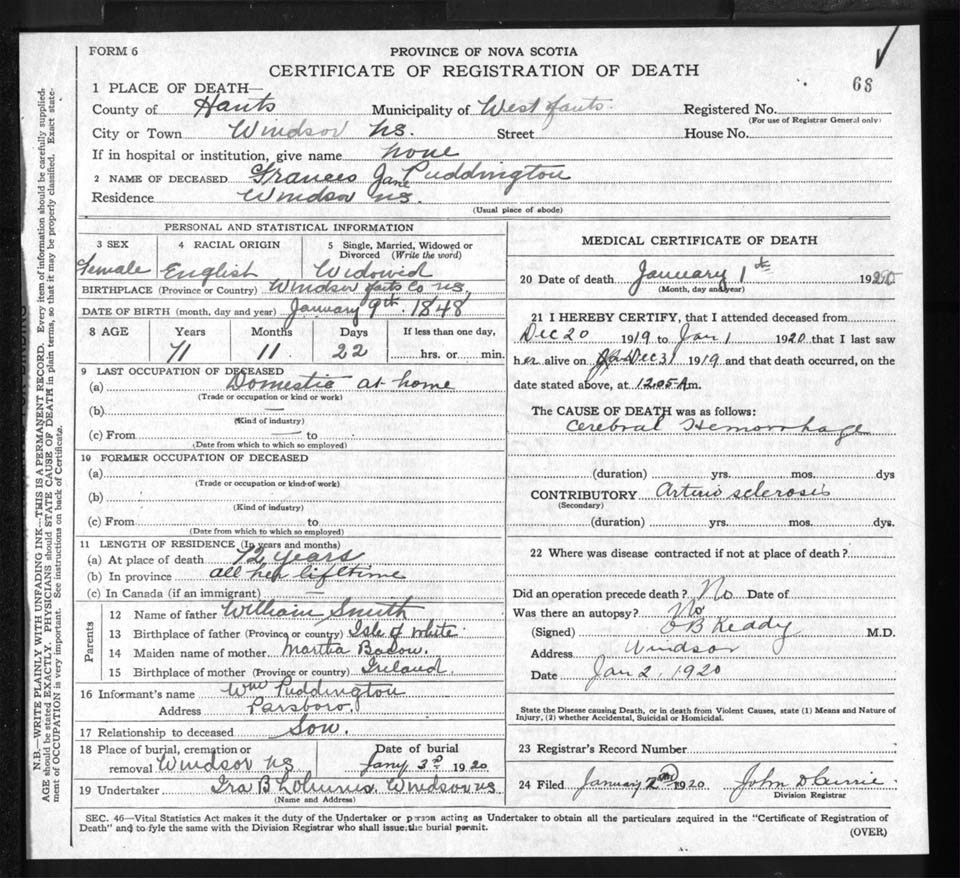 FORM 6
PROVINCE OF NOVA SCOTIA
CERTIFICATE OF REGISTRATION OF DEATH
68
1 PLACE OF DEATH—
County of Hants Municipality of West Hants. Registered No.
(For use of Registrar General only)
City or Town Windsor NS. Street House No.
If in hospital or institution, give name none
2 NAME OF DECEASED Frances Jane Puddington
Residence Windsor NS.
(Usual place of abode)
PERSONAL AND STATISTICAL INFORMATION
3 SEX 4 RACIAL ORIGIN 5 Single, Married, Widowed or Divorced (Write the word)
Female English Widowid
BIRTHPLACE (Province or Country) Windsor Hants Co NS,
DATE OF BIRTH (month, day and year) January 9th. 1848
8 AGE Years Months Days If less than one day,
71 11 22 hrs. or min.
9 LAST OCCUPATION OF DECEASED
(a) Domestic at home
(Trade or occupation or kind or work)
(b) —
(Kind of industry)
(c) From — to
(Date from which to which so employed)
10 FORMER OCCUPATION OF DECEASED
(a)
(Trade or occupation or kind of work)
(b)
(Kind of industry)
(c) From to
(Date from which to which so employed)
11 LENGTH OF RESIDENCE (In years and months)
(a) At place of death 72 years
(b) In province all her lifetime
(c) In Canada (if an immigrant) —
Parents
12 Name of father William Smith
13 Birthplace of father (Province or country) Isle of White
14 Maiden name of mother Martha
15 Birthplace of mother (Province or country) Ireland.
16 Informant's name Wm Puddington
Address Parsboro.
17 Relationship to deceased Son.
18 Place of burial, cremation or removal Windsor NS Date of burial Jany 3rd 1920
19 Undertaker Ira B Windsor NS
(Name and Address)
MEDICAL CERTIFICATE OF DEATH
20 Date of death January 1st 1920
(Month, day and year)
21 I HEREBY CERTIFY, that I attended deceased from
Dec 20 1919 to Jan 1 1920 that I last saw
her alive on Dec 31 1919 and that death occurred, on the
date stated above, at 12.05 A m.
The CAUSE OF DEATH was as follows:
Cerebral Hemorrhage
(duration) yrs. mos. dys
CONTRIBUTORY Arterio sclerosis
(Secondary)
(duration) yrs. mos. dys.
22 Where was disease contracted if not at place of death?
Did an operation precede death? No Date of
Was there an autopsy? No
(Signed) O B Keddy M.D.
Address Windsor
Date Jan 2, 1920
State the Disease causing Death, or in death from Violent Causes, state (1) Means and Nature of
Injury, (2) whether Accidental, Suicidal or Homicidal.
23 Registrar's Record Number
24 Filed January 2nd 1920 John D Currie
Division Registrar
SEC. 46—Vital Statistics Act makes it the duty of the Undertaker or person acting as Undertaker to obtain all the particulars required in the "Certificate of Registration of
Death" and to fyle the same with the Division Registrar who shall issue the burial permit.
(OVER)
N.B.—WRITE PLAINLY WITH UNFADING INK—THIS IS A PERMANENT RECORD. Every item of information should be carefully supplied.
AGE should be stated EXACTLY. PHYSICIANS should STATE CAUSE OF DEATH in plain terms, so that it may be properly classified. Exact statement
of OCCUPATION is very important. See instructions on back of Certificate.